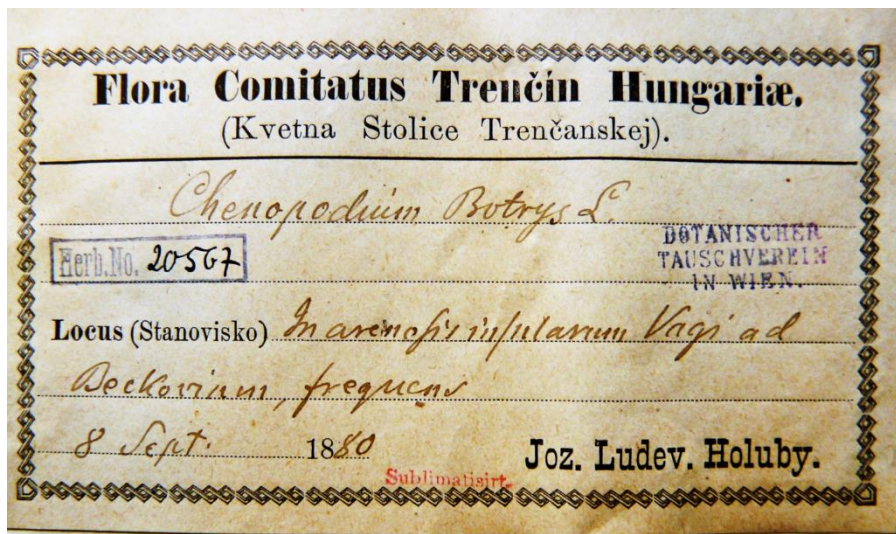 Flora Comitatus Trenčín Hungariæ.
(Kvetna Stolice Trenčanskej).
Chenopodium Botrys L.
Herb. No. 20567
BOTANISCHER
TAUSCHVEREIN
IN WIEN.
Locus (Stanovisko) In arenosis insularum Vagi ad
Beckovium, frequens
8 Sept. 1880
Joz. Ludev. Holuby.
Sublimatisirt.